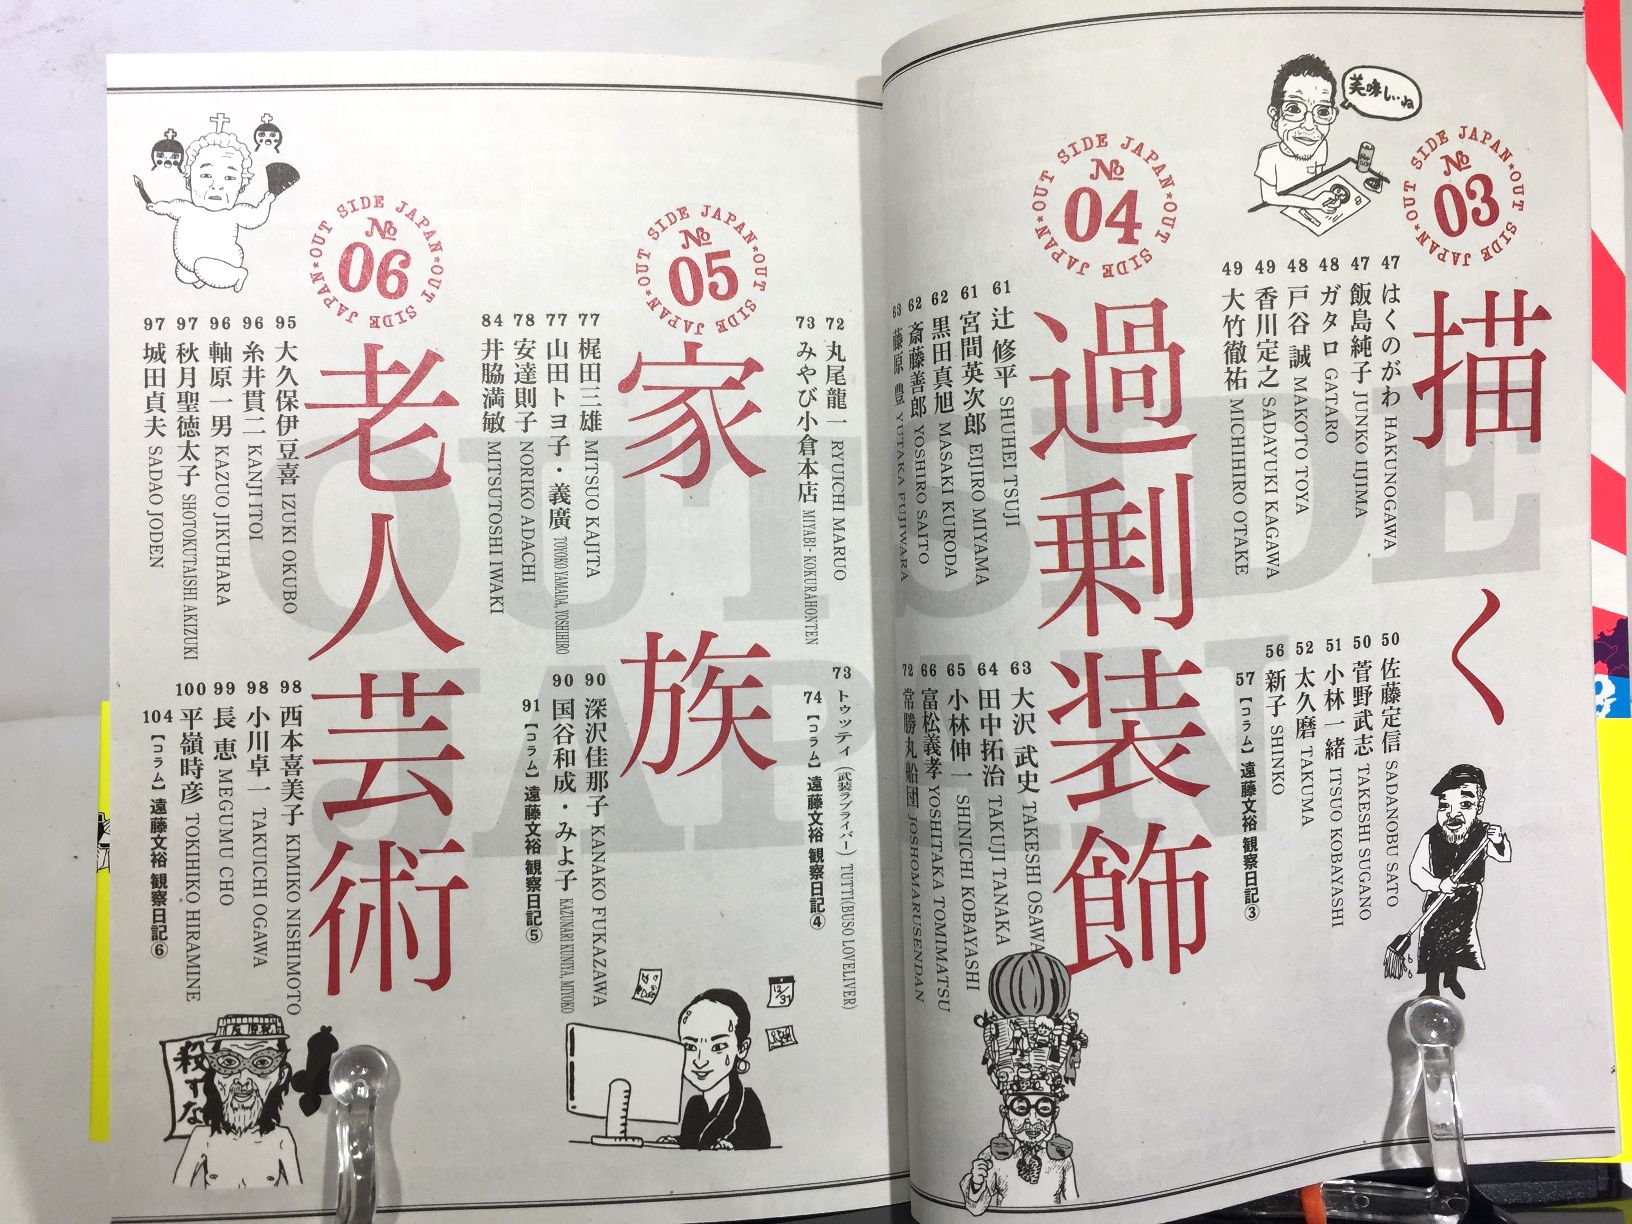 OUTSIDE JAPAN
美味しいね
OUT SIDE JAPAN★OUT SIDE JAPAN★
№
03
描く
47 はくのがわ HAKUNOGAWA
47 飯島純子 JUNKO IIJIMA
48 ガタロ GATARO
48 戸谷 誠 MAKOTO TOYA
49 香川定之 SADAYUKI KAGAWA
49 大竹徹祐 MICHIHIRO OTAKE
50 佐藤定信 SADANOBU SATO
50 菅野武志 TAKESHI SUGANO
51 小林一緒 ITSUO KOBAYASHI
52 太久磨 TAKUMA
56 新子 SHINKO
57 【コラム】遠藤文裕 観察日記③
OUT SIDE JAPAN★OUT SIDE JAPAN★
№
04
過剰装飾
61 辻 修平 SHUHEI TSUJI
61 宮間英次郎 EIJIRO MIYAMA
62 黒田真旭 MASAKI KURODA
62 斎藤善郎 YOSHIRO SAITO
63 藤原 豊 YUTAKA FUJIWARA
63 大沢 武史 TAKESHI OSAWA
64 田中拓治 TAKUJI TANAKA
65 小林伸一 SHINICHI KOBAYASHI
66 富松義孝 YOSHITAKA TOMIMATSU
72 常勝丸船団 JOSHOMARUSENDAN
72 丸尾龍一 RYUICHI MARUO
73 みやび小倉本店 MIYABI-KOKURAHONTEN
73 トゥッティ(武装ラブライバー) TUTTI(BUSO LOVELIVER)
74 【コラム】遠藤文裕 観察日記④
OUT SIDE JAPAN★OUT SIDE JAPAN★
№
05
家族
77 梶田三雄 MITSUO KAJITA
77 山田トヨ子・義廣 TOYOKO YAMADA, YOSHIHIRO
78 安達則子 NORIKO ADACHI
84 井脇満敏 MITSUTOSHI IWAKI
90 深沢佳那子 KANAKO FUKAZAWA
90 国谷和成・みよ子 KAZUNARI KUNIYA, MIYOKO
91 【コラム】遠藤文裕 観察日記⑤
12/31
OUT SIDE JAPAN★OUT SIDE JAPAN★
№
06
老人芸術
95 大久保伊豆喜 IZUKI OKUBO
96 糸井貫二 KANJI ITOI
96 軸原一男 KAZUO JIKUHARA
97 秋月聖徳太子 SHOTOKUTAISHI AKIZUKI
97 城田貞夫 SADAO JODEN
98 西本喜美子 KIMIKO NISHIMOTO
98 小川卓一 TAKUICHI OGAWA
99 長 恵 MEGUMU CHO
100 平嶺時彦 TOKIHIKO HIRAMINE
104 【コラム】遠藤文裕 観察日記⑥
殺すな